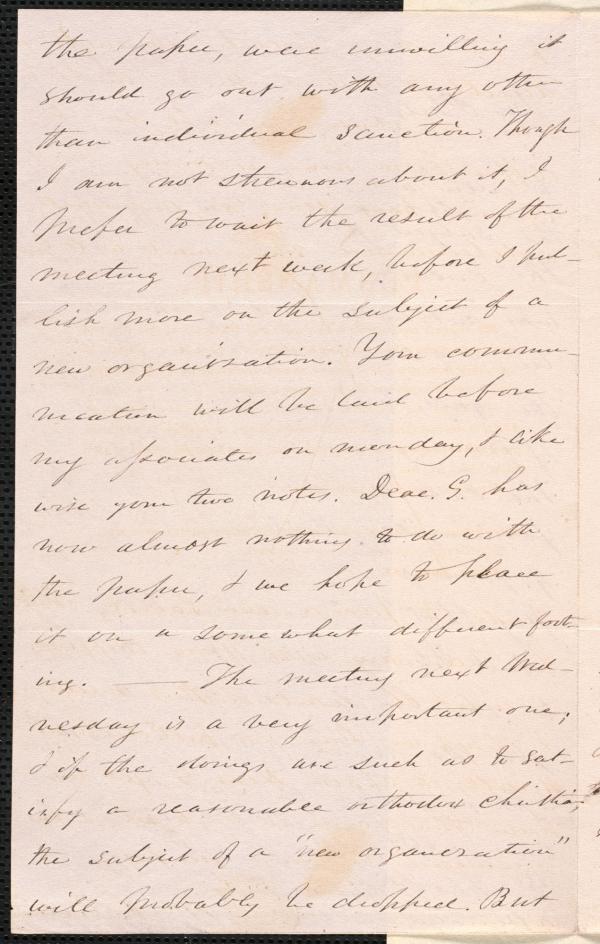 the paper, were unwilling it
should go out with any other
than individual sanction. Though
I am not strenuous about it, I
prefer to wait the result of the
meeting next week, before I pub-
lish more on the subject of a
new organization. Your commu-
nication will be laid before
my associates on monday, & like
wise your two notes. Deac. G. has
now almost nothing to do with
the paper, & we hope to place
it on a somewhat different foot-
ing. —— The meeting next Wed-
nesday is a very important one;
& if the doings are such as to sat-
isfy a reasonable orthodox christian,
the subject of a "new organization"
will probably be dropped. But